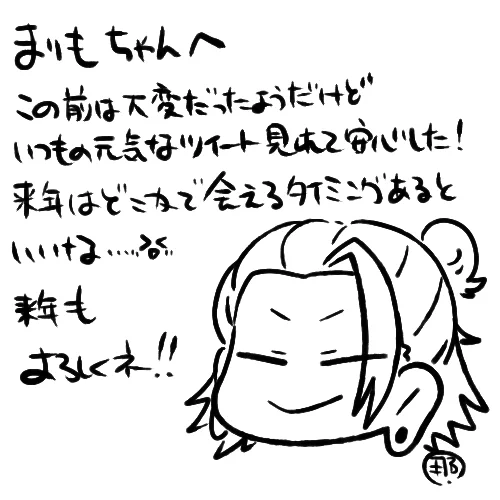 まりもちゃんへ
この前は大変だったようだけど
いつもの元気なツイート見れて安心した!
来年はどこかで会えるタイミングあると
いいけな……
来年も
よろしくネー!!
那